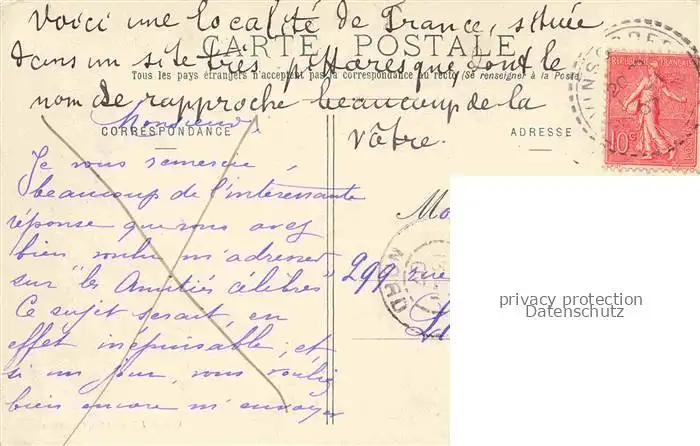 Voici une localité de France, située
CARTE POSTALE
dans un site très pittoresque, dont le
Tous les pays étrangers n'acceptent pas la correspondance au recto (Se renseigner à la Poste)
nom se rapproche beaucoup de la
vôtre.
CORRESPONDANCE
ADRESSE
Monsieur,
Je vous remercie
beaucoup de l'intéressante
réponse que vous avez
bien voulu m'adresser
sur "les Amitiés célèbres"
Ce sujet serait, en
effet inépuisable; et
si un jour, vous vouliez
bien encore m'envoyer
RÉPUBLIQUE FRANÇAISE
10c
Mo
299 rue
NORD
privacy protection
Datenschutz